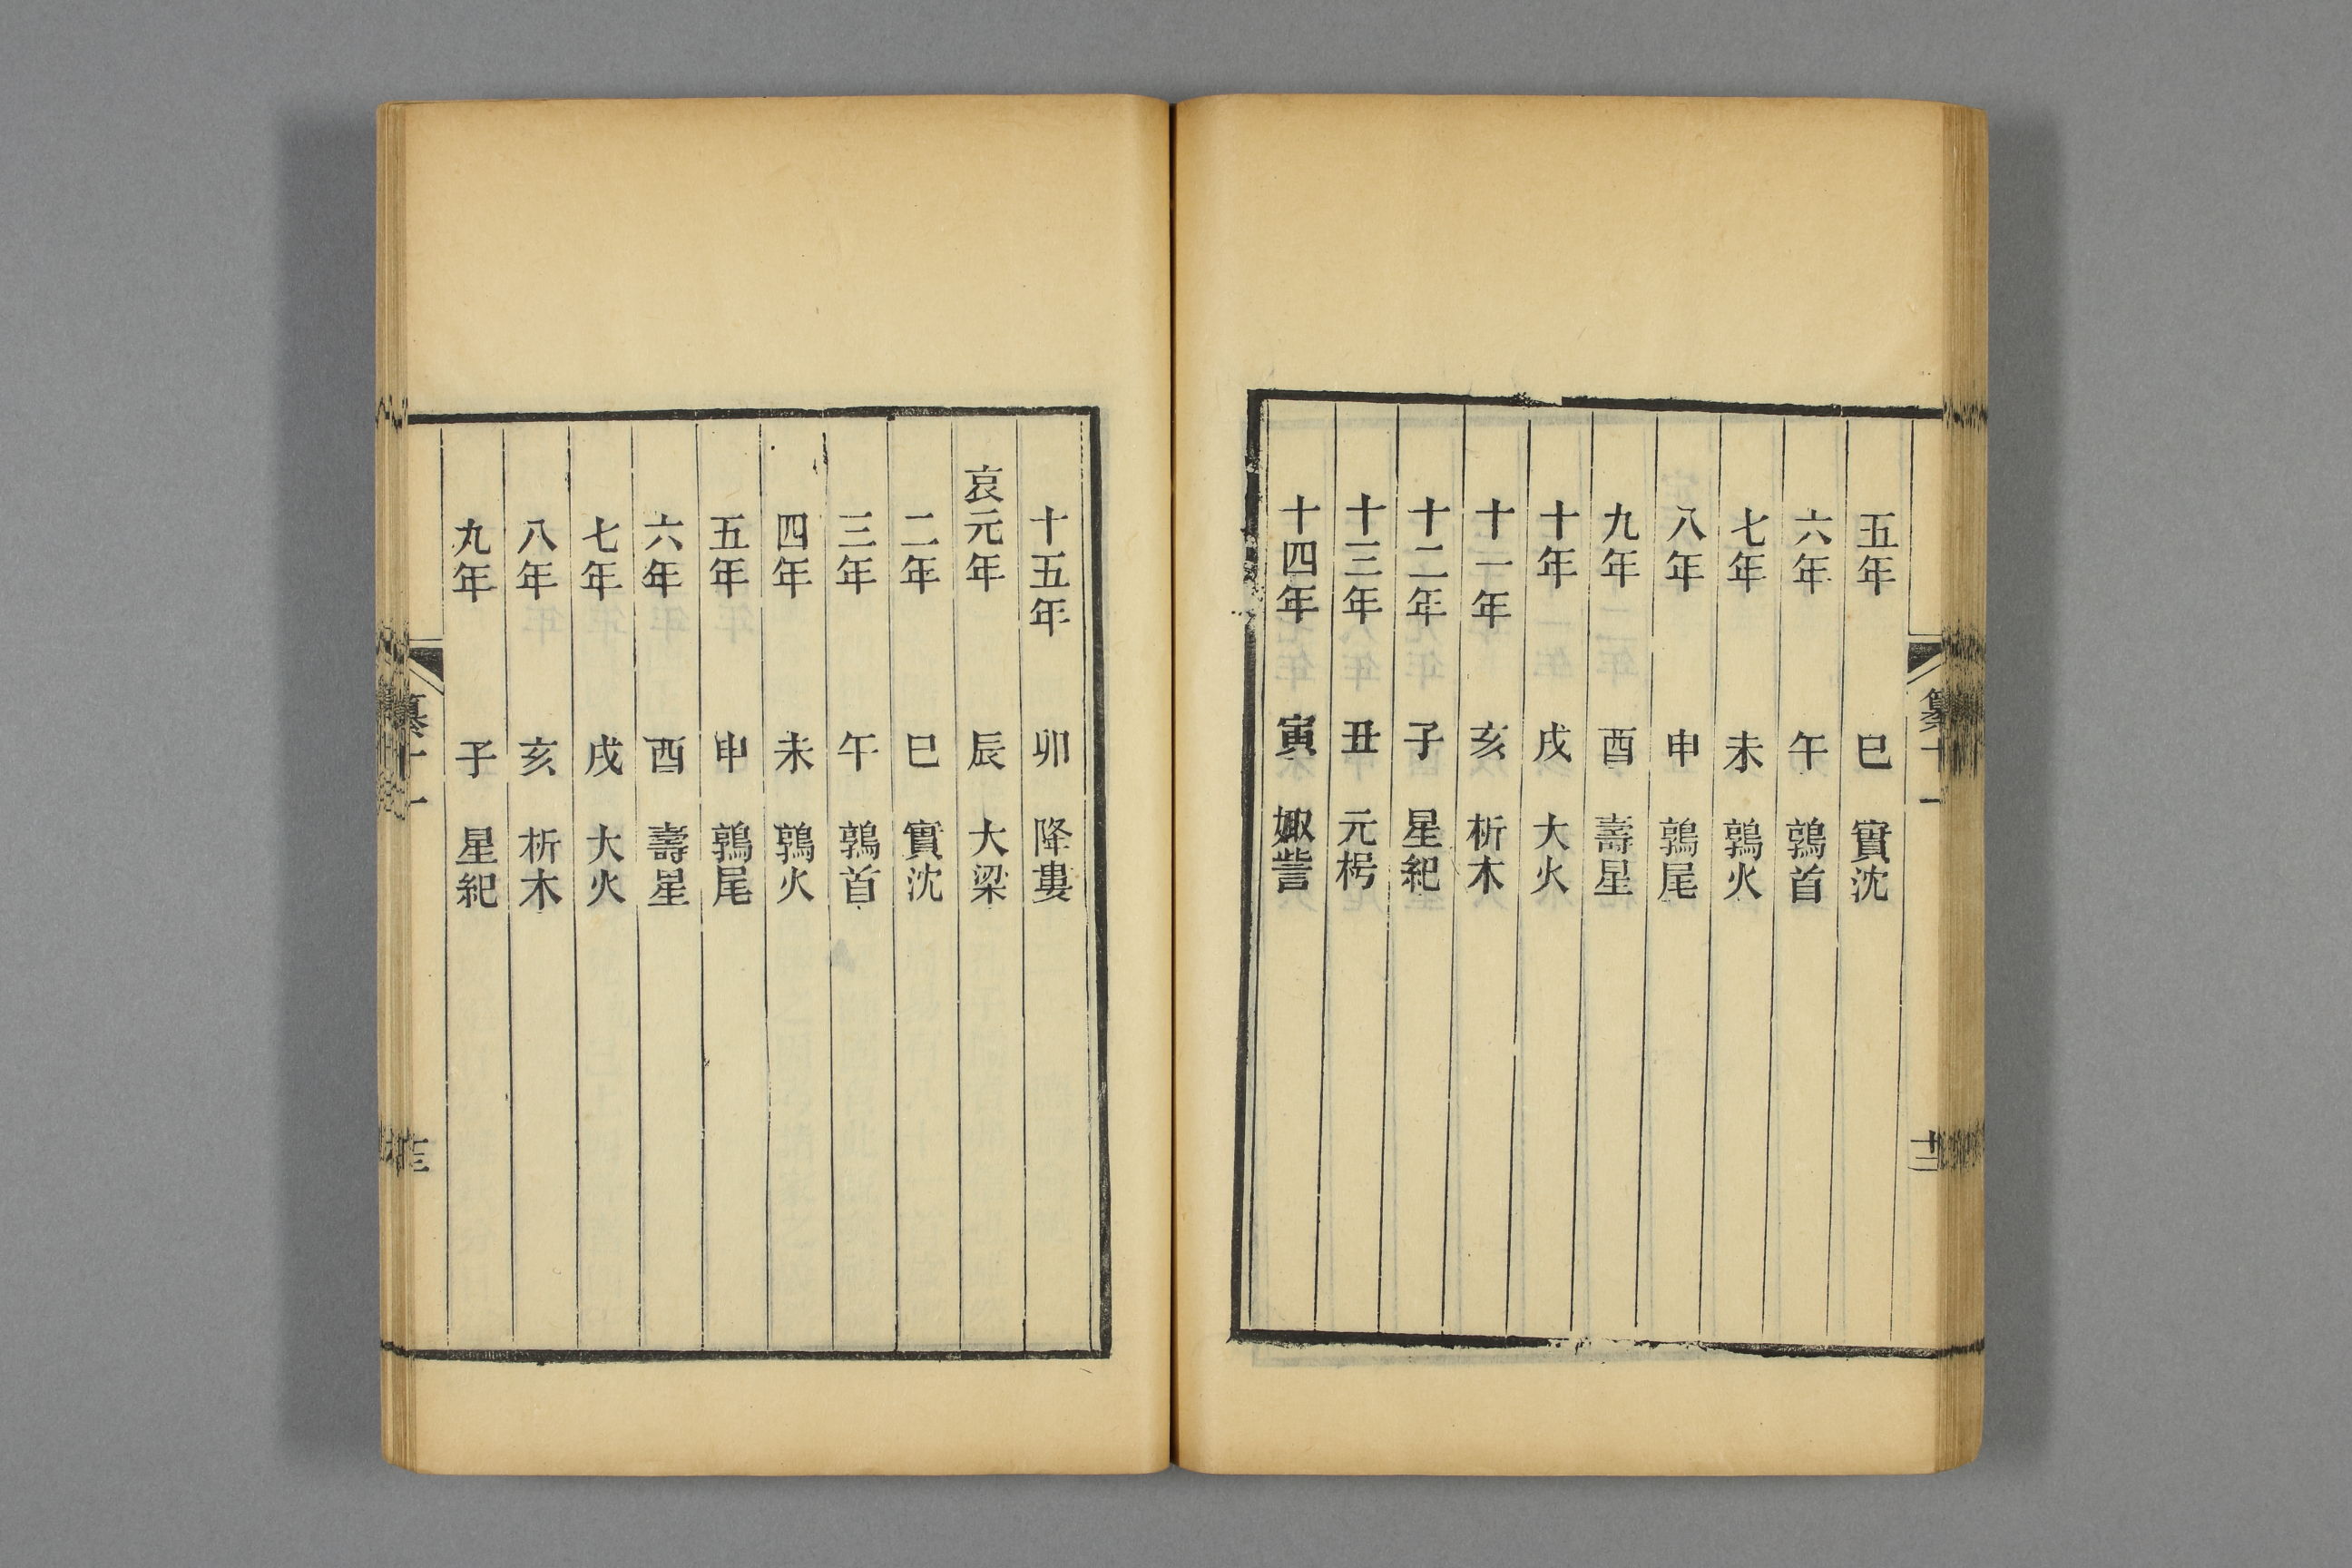 五年 巳 實沈
六年 午 鶉首
七年 未 鶉火
八年 申 鶉尾
九年 酉 壽星
十年 戌 大火
十一年 亥 析木
十二年 子 星紀
十三年 丑 元枵
十四年 寅 娵訾
十五年 卯 降婁
哀元年 辰 大梁
二年 巳 實沈
三年 午 鶉首
四年 未 鶉火
五年 申 鶉尾
六年 酉 壽星
七年 戌 大火
八年 亥 析木
九年 子 星紀